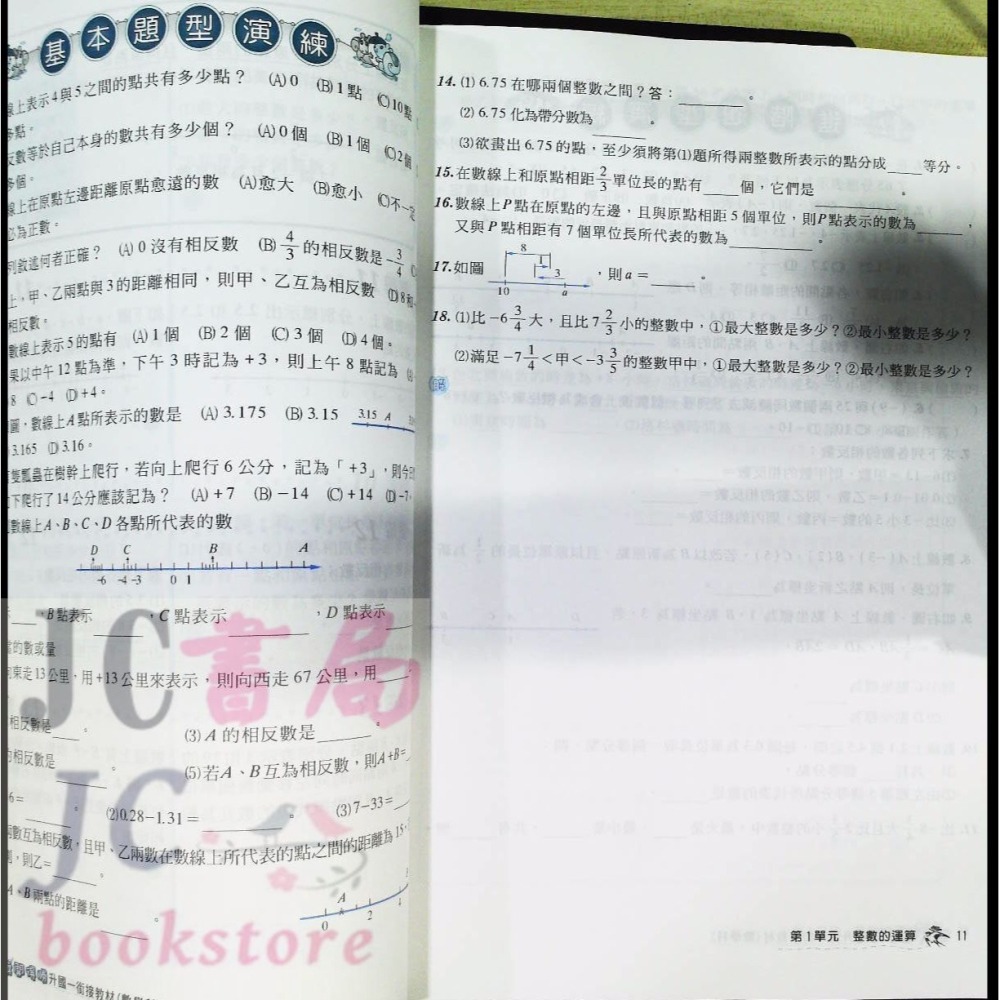 基本題型演練
線上表示4與5之間的點共有多少點? (A) 0 (B) 1點 (C) 10點
多點。
反數等於自己本身的數共有多少個? (A) 0個 (B) 1個 (C) 2個
多個。
線上在原點左邊距離原點愈遠的數 (A)愈大 (B)愈小 (C)不一定
必為正數。
列敘述何者正確? (A) 0沒有相反數 (B) 4/3 的相反數是 -3/4
上,甲、乙兩點與3的距離相同,則甲、乙互為相反數 (D) 8和
相反數。
數線上表示5的點有 (A) 1個 (B) 2個 (C) 3個 (D) 4個。
果以中午12點為準,下午3時記為+3,則上午8點記為
8 (C) -4 (D) +4。
圖,數線上A點所表示的數是 (A) 3.175 (B) 3.15
3.15 A
3.165 (D) 3.16。
隻瓢蟲在樹幹上爬行,若向上爬行6公分,記為「+3」,則
下爬行了14公分應該記為? (A) +7 (B) -14 (C) +14 (D) -7
數線上A、B、C、D各點所代表的數
D C B A
-6 -4 -3 0 1
、B點表示____,C點表示____,D點表示____
的數或量
向東走13公里,用+13公里來表示,則向西走67公里,用____
相反數是____。 (3) A的相反數是____。
相反數是____。 (5)若A、B互為相反數,則A+B=____
6=____。 (2) 0.28-1.31=____。 (3) 7-33=____
兩數互為相反數,且甲、乙兩數在數線上所代表的點之間的距離為15,
則乙=____。
A、B兩點的距離是____。
A
0 2
升國一銜接教材
JC書局
JC
bookstore
14. (1) 6.75在哪兩個整數之間?答:____。
(2) 6.75化為帶分數為____。
(3)欲畫出6.75的點,至少須將第(1)題所得兩整數所表示的點分成____等分。
15. 在數線上和原點相距 2/3 單位長的點有____個,它們是____。
16. 數線上P點在原點的左邊,且與原點相距5個單位,則P點表示的數為____,
又與P點相距有7個單位長所代表的數為____。
8
1
17. 如圖 3 ,則a=____。
10 a
18. (1)比 -6 3/4 大,且比 7 2/3 小的整數中,①最大整數是多少?②最小整數是多少?
(2)滿足 -7 1/4 <甲< -3 3/5 的整數甲中,①最大整數是多少?②最小整數是多少?
第1單元 整數的運算 11